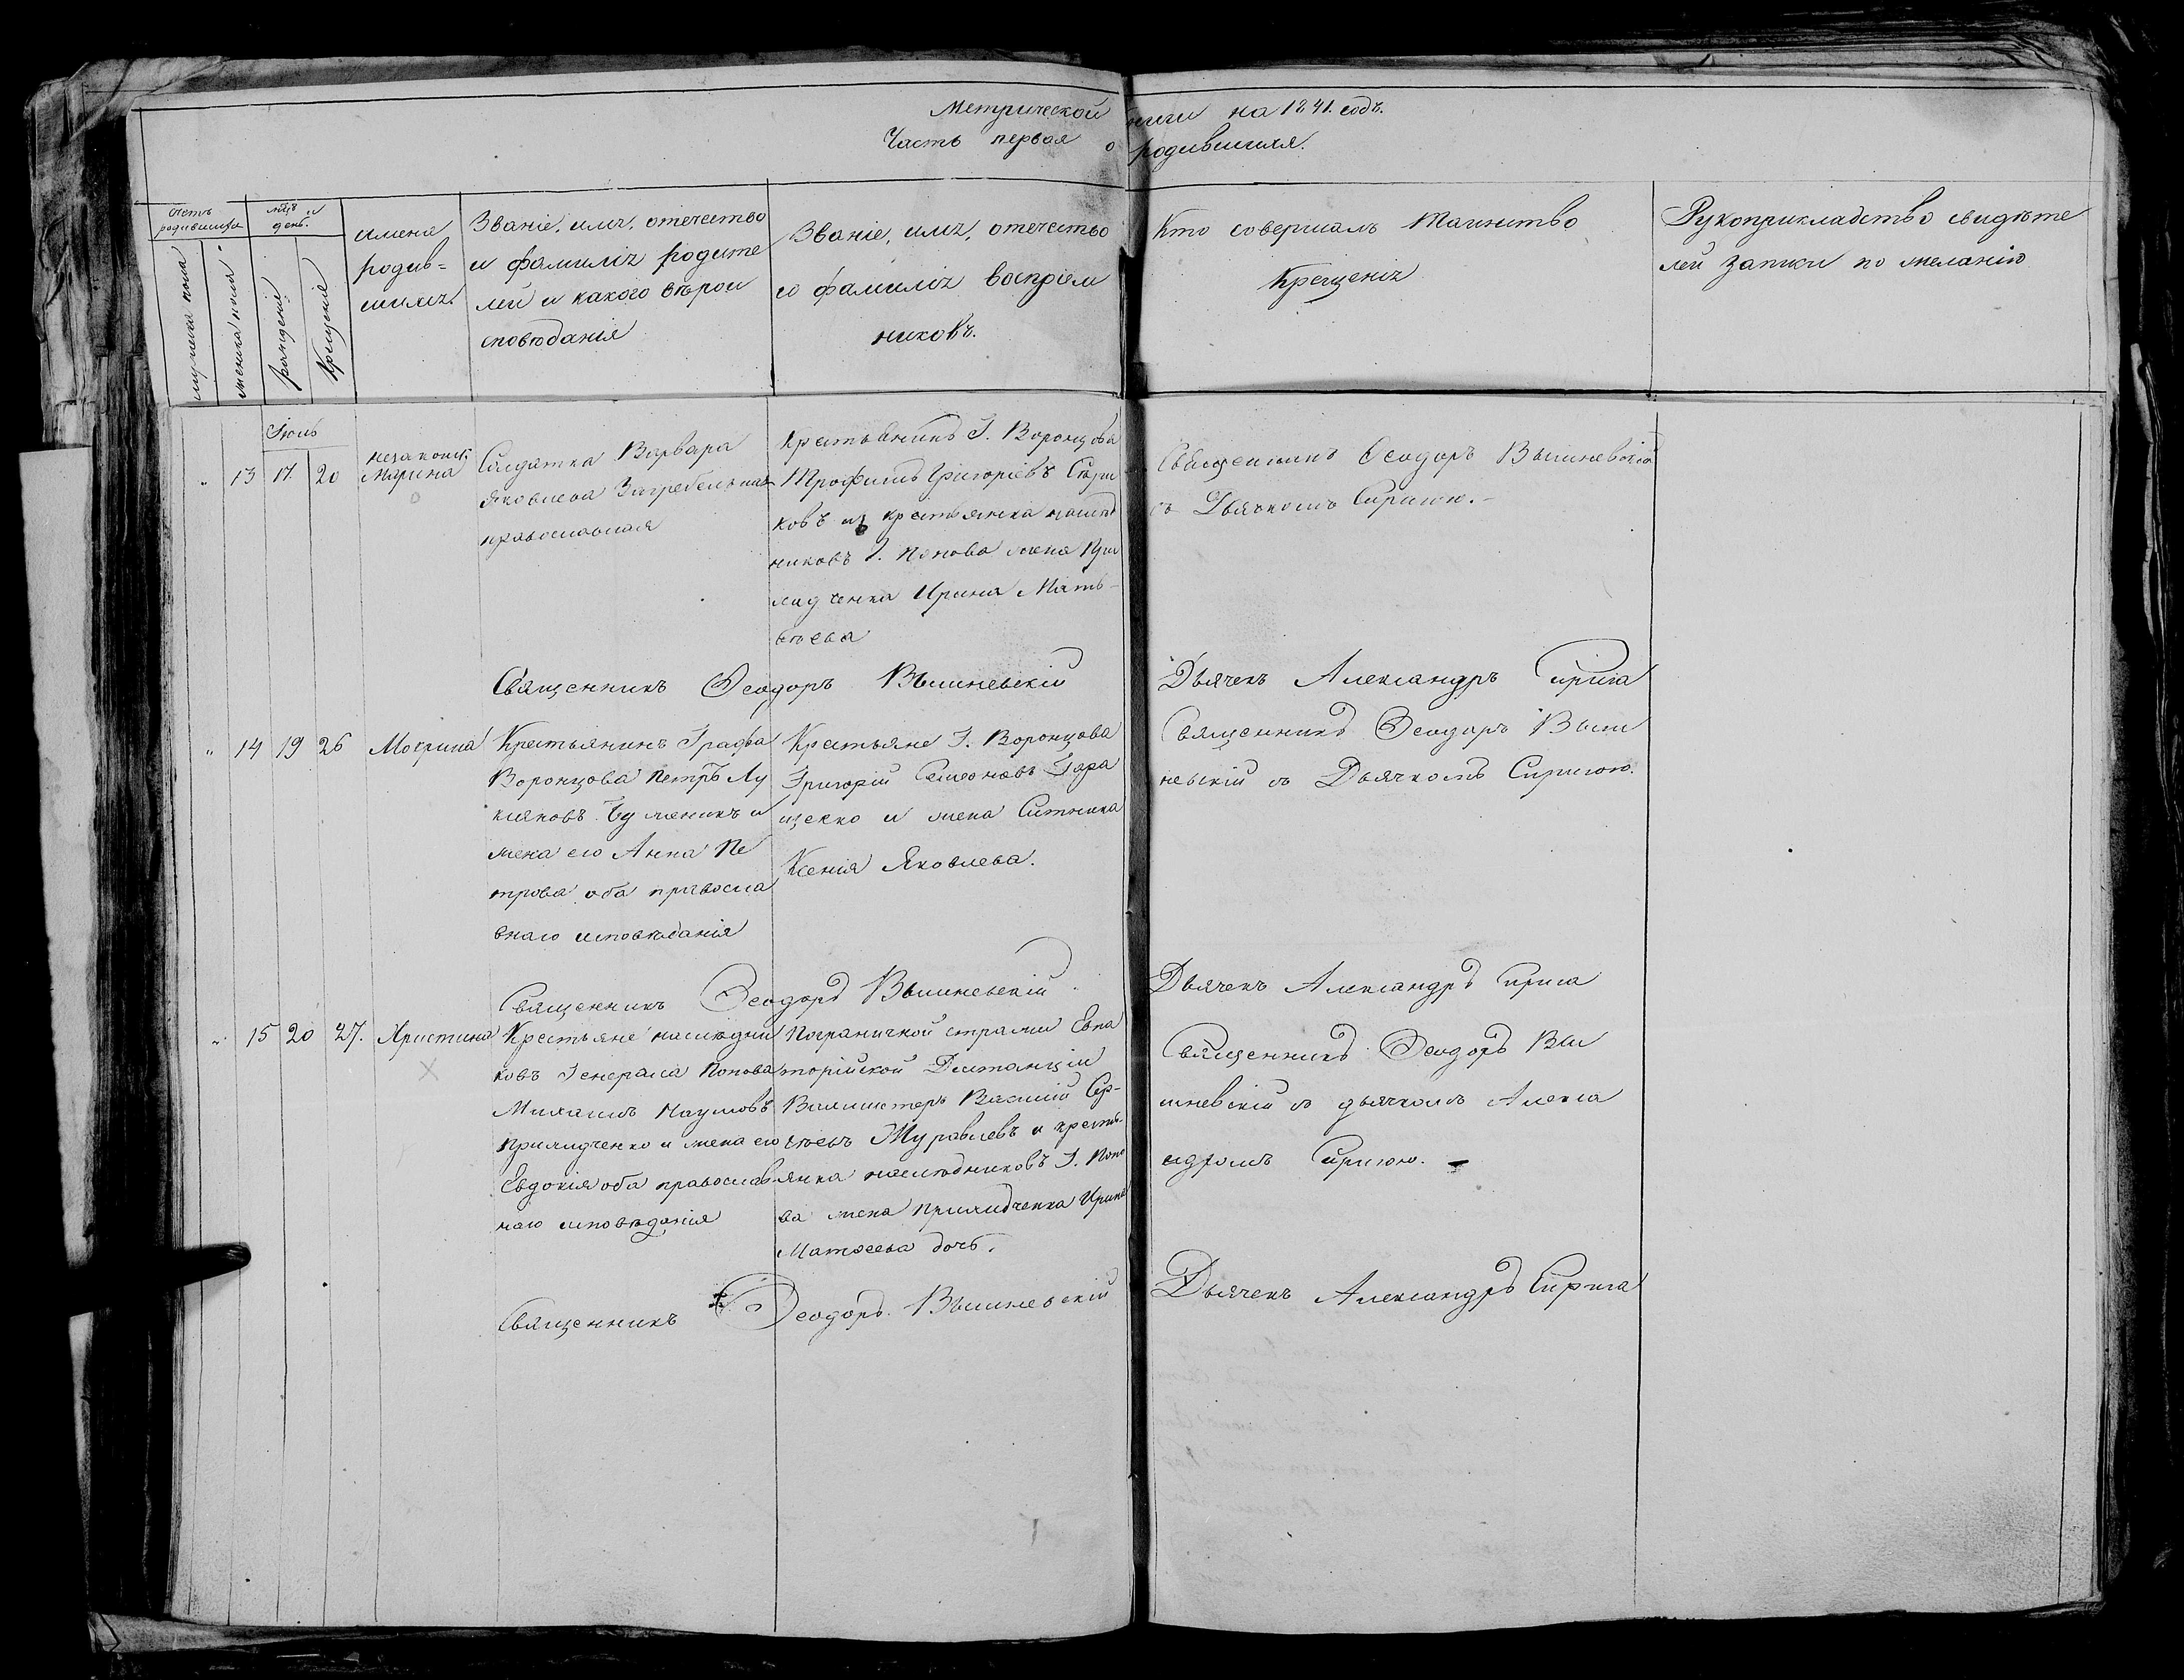 Метрической книги на 1841. годъ.
Часть первая о родившихся.
Счетъ родившихся
мужеска пола
женска пола
мѣс. и день.
рожденія
Крещенія
имена
родив=
шихся.
Званіе, имя, отечество
и фамилія родите
лей и какого вѣрои
сповѣданія
Званіе, имя, отечество
и фамилія воспріем
никовъ.
Кто совершалъ Таинство
Крещенія
Рукоприкладство свидѣте
лей записи по желанію
Іюль
" 13 17. 20
незаконн.
Марина
Солдатка Варвара
Яковлева Загребельная
православная
Крестьянинъ Г. Воронцова
Трофимъ Григоріевъ
ковъ и крестьянка наслѣд
никовъ Г. Попова жена При
лидченка Ирина Матѳ-
ѣева
Священникъ Ѳеодоръ Вышневскій
съ Дьячкомъ Сиригою.
Священникъ Ѳеодоръ Вышневскій
Дьячекъ Александръ Сирига
" 14 19 26 Мокрина
Крестьянинъ Графа
Воронцова Петръ Лу
кіяновъ и
жена его Анна Пе
трова оба правосла
внаго исповѣданія
Крестьяне Г. Воронцова
Григорій Семеновъ Гара
щенко и жена Ситника
Ксенія Яковлева.
Священникъ Ѳеодоръ Выш
невскій съ Дьячкомъ Сиригою.
Священникъ Ѳеодоръ Вышневскій
Дьячекъ Александръ Сирига
" 15 20 27. Христина
Крестьяне наслѣдни
ковъ Генерала Попова
Михаилъ Наумовъ
Прилидченко и жена его
Евдокія оба православ
наго исповѣданія
Пограничной стражи Евпа
торійской Дистанціи
Вахмистеръ Василій Сер-
гѣевъ Журавлевъ и кресть
янка наслѣдниковъ Г. Попо
ва жена Прилидченка Ирина
Матвѣева дочь.
Священникъ Ѳеодоръ Вы
шневскій съ дьячкомъ Алекса
ндромъ Сиригою.
Священникъ Ѳеодоръ Вышневскій
Дьячекъ Александръ Сирига